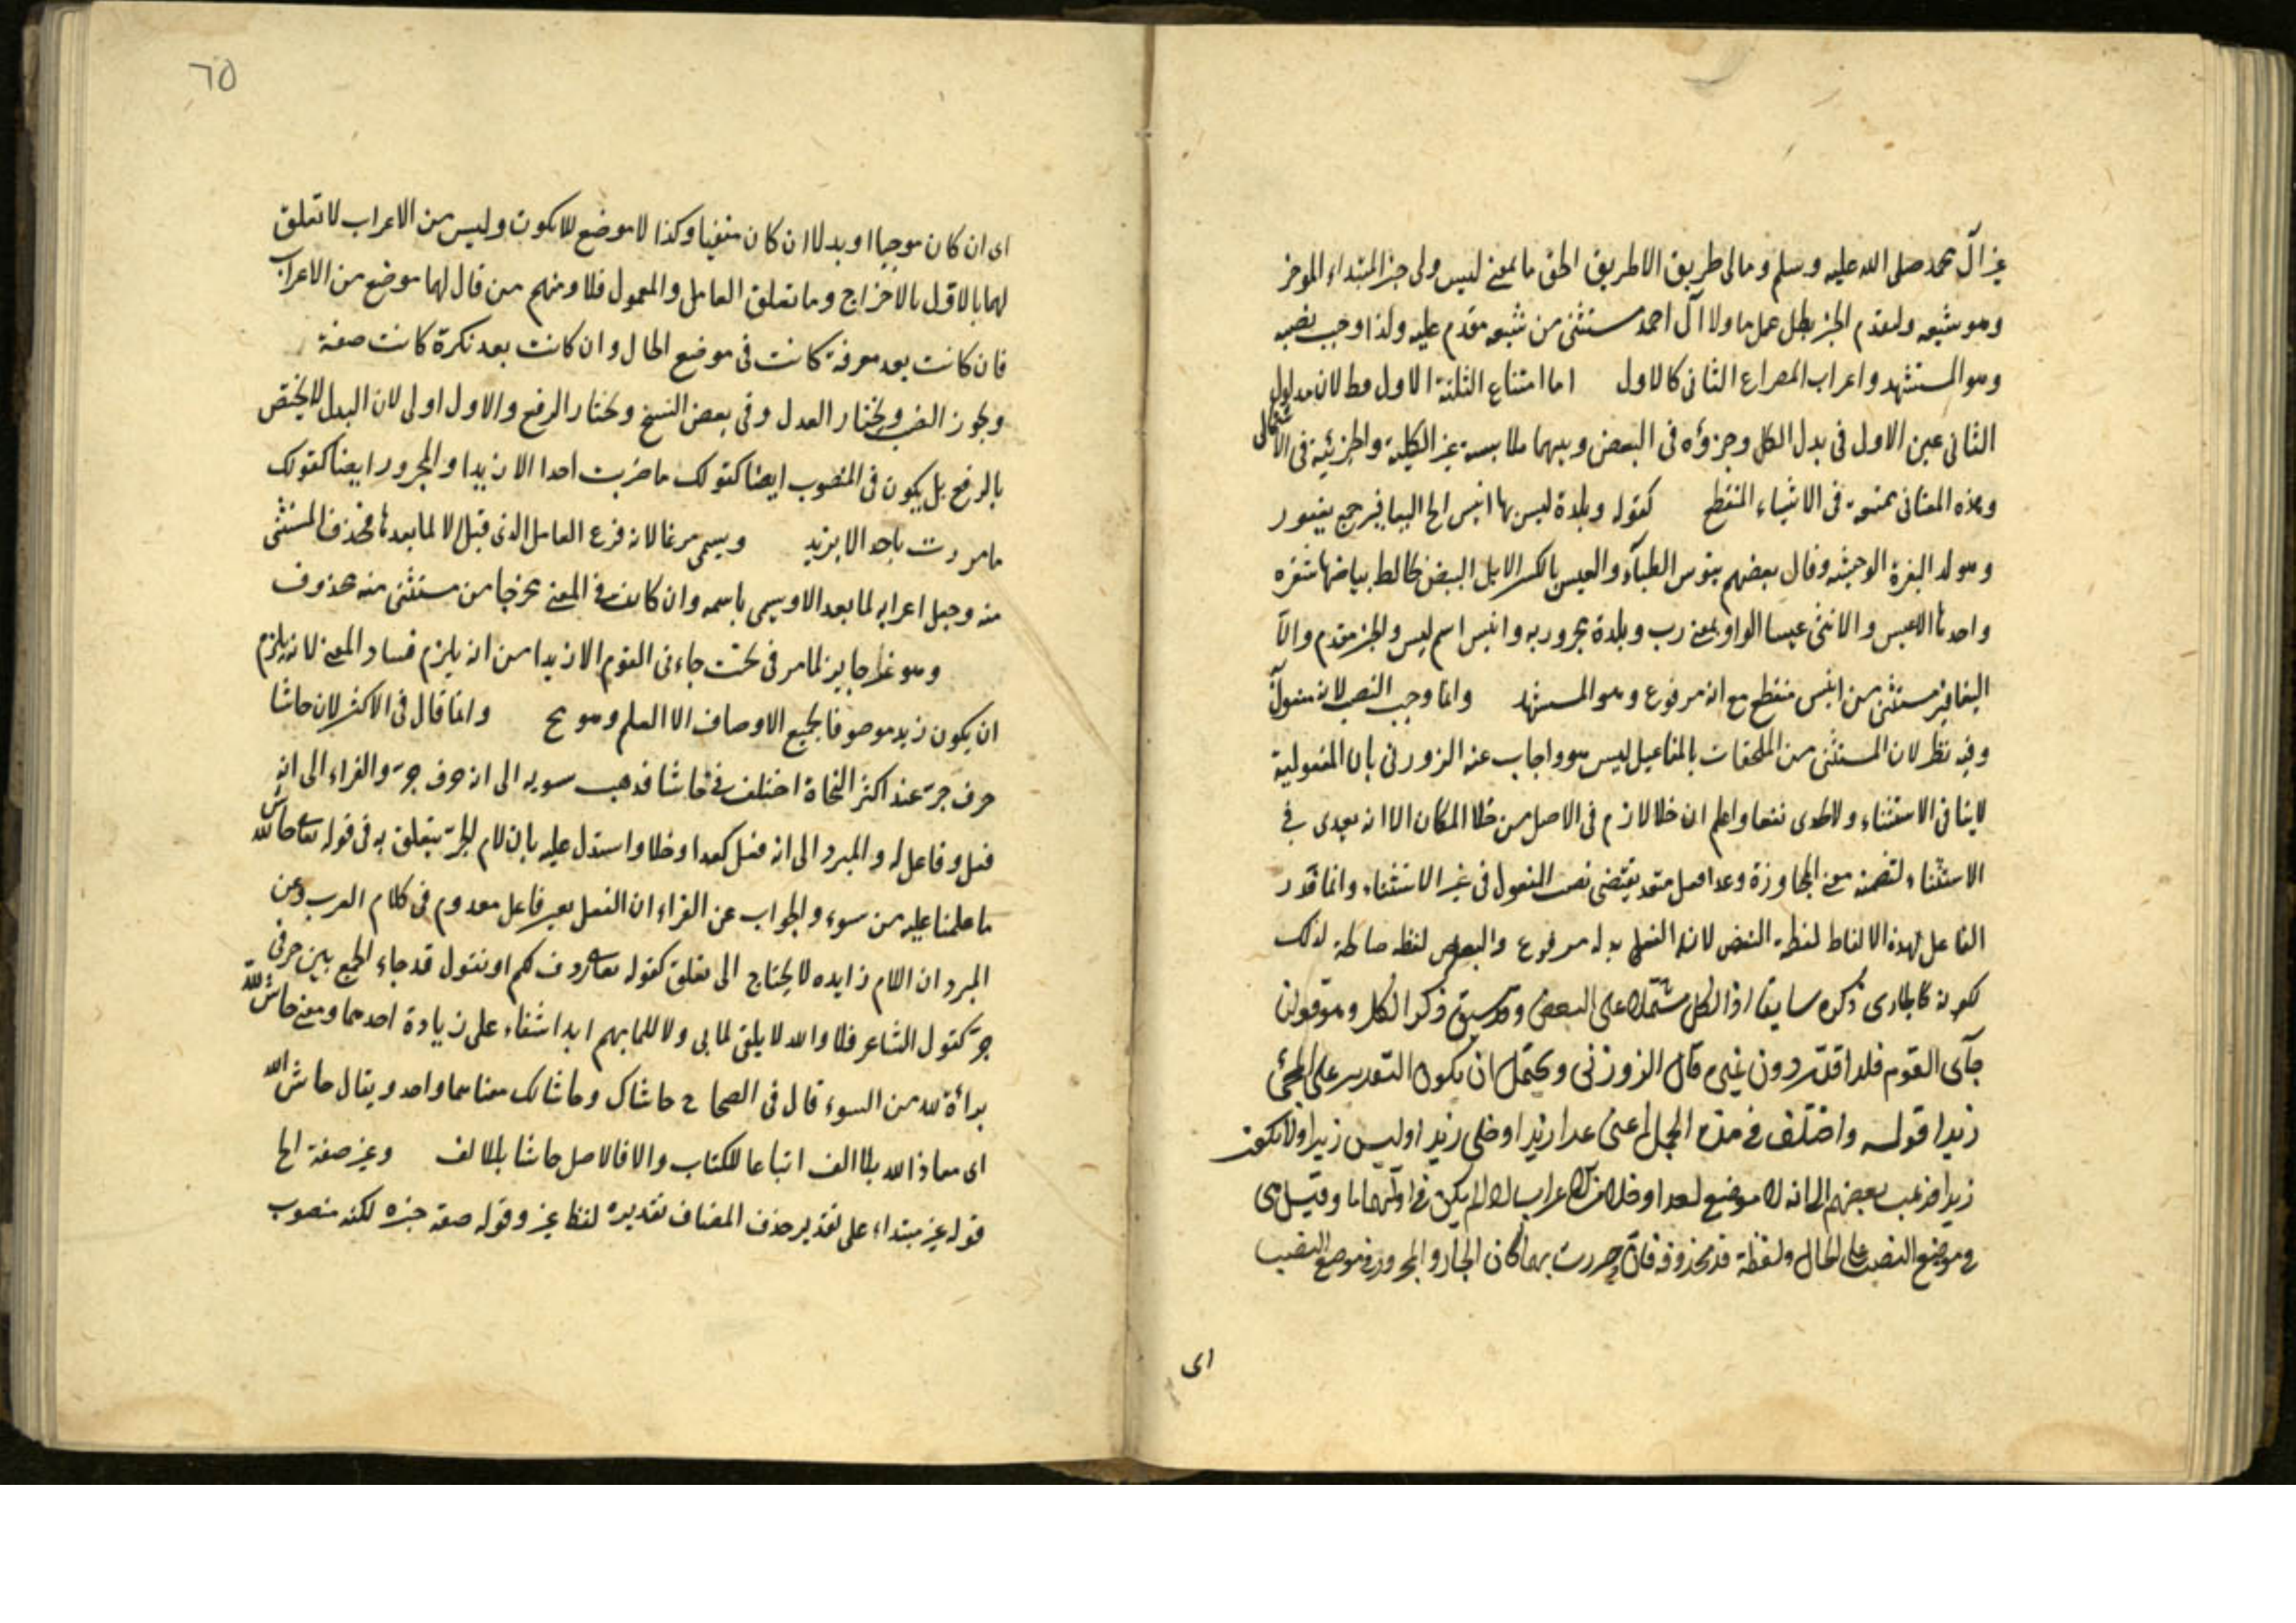 غير آل محمد صلى الله عليه وسلم ومالى طريق الا طريق الحق ما بمعنى ليس ولى خبر المبتداء الموخر
وهو شيعه ولتقدم الخبر بطل عمل ما ولا آل احمد مستثنى من شيعه مقدم عليه ولذا وجب نصبه
وهو المستشهد واعراب المصراع الثانى كالاول اما امتناع الثلثة الاول فطلان مدلول
الثانى عين الاول فى بدل الكل وجزؤه فى البعض وبينهما ملابسة غير الكلية والجزئية فى الاشتمال
وهذه المعانى ممتنعة فى الاشياء المنقطع كقوله وبلدة ليس بها انيس الخ اليعافير جمع يعفور
وهو ولد البقرة الوحشية وقال بعضهم تيوس الظباء والعيس بالكسر الابل البيض يخالط بياضها شقره
واحدها الاعيس والانثى عيسا الواو بمعنى رب وبلدة مجرور به وانيس اسم ليس والخبر مقدم والا
اليعافير مستثنى من انيس منقطع مع انه مرفوع وهو المستشهد وانما وجب النصب لانه مفعول
وفيه نظر لان المستثنى من الملحقات بالمفاعيل ليس هو واجاب عنه الزوزنى بان المفعولية
لا ينافى الاستثناء ولا يجدى نفعا واعلم ان خلا لازم فى الاصل من خلا المكان الا انه يعدى فى
الاستثناء لتضمنه معنى المجاوزة وعدا فعل متعد يقتضى نصب المفعول فى غير الاستثناء وانما قدر
الفاعل لهذه الالفاظ لفظة البعض لانه الفعل بد له مرفوع والبعض لفظه صالحة لذلك
لكونه كالجارى ذكره سابقا اذ الكل مشتملة على البعض وقد سبق ذكر الكل وهو قولن
جاءى القوم فلذا قدر دون غيره قال الزوزنى ويحتمل ان يكون التقدير على المجئ
زيدا قوله واختلف فى هذه الجمل اعنى عدا زيدا وخلى زيدا وليس زيدا ولا يكون
زيدا فذهب بعضهم الى انه لا موضع لعدا وخلا من الاعراب اذا لم يكن فى اولهما ما وقيل هى
فى موضع النصب على الحال ولفظة قد محذوفة فان جررت بهما كان الجار والمجرور فى موضع النصب
اى
٦٥
اى ان كان موجبا او بدلا ان كان منفيا وكذا لا موضع للا يكون وليس من الاعراب لا تعلق
لهما بالاول بالاخراج وما تعلق العامل والمعمول فلا ومنهم من قال لها موضع من الاعراب
فان كانت بعد معرفة كانت فى موضع الحال وان كانت بعد نكرة كانت صفة
ويجوز النصب ويختار البدل وفى بعض النسخ ويختار الرفع والاول اولى لان البدل لا يختص
بالرفع بل يكون فى المنصوب ايضا كقولك ما ضربت احدا الا زيدا والمجرور ايضا كقولك
ما مررت باحد الا بزيد ويسمى مفرغا لانه فرغ العامل الذى قبل الا لما بعدها فحذف المستثنى
منه وجعل اعرابه لما بعد الا ويسمى باسمه وان كانت فى المعنى مخرجا من مستثنى منه محذوف
وهو غير جايز لما مر فى بحث جاءنى القوم الا زيدا من انه يلزم فساد المعنى لانه يلزم
ان يكون زيد موصوفا بجميع الاوصاف الا العلم وهو مح وانما قال فى الاكثر لان حاشا
حرف جر عند اكثر النحاة اختلف فى حاشا فذهب سيبويه الى انه حرف جر والفراء الى انه
فعل وفاعل له والمبرد الى انه فعل كعدا وخلا واستدل عليه بان لام الجر يتعلق به فى قوله تعالى حاش لله
ما علمنا عليه من سوء والجواب عن الفراء ان الفعل بغير فاعل معدوم فى كلام العرب وعن
المبرد ان اللام زايده لا يحتاج الى تعلق كقوله تعالى ردف لكم او نقول قد جاء الجمع بين حرفى
جر كقول الشاعر فلا والله لا يلفى لما بى ولا للما بهم ابدا شفاء على زيادة احدهما ومعنى حاش لله
براءة لله من السوء قال فى الصحاح حاشاك وحاشا لك معناهما واحد ويقال حاش الله
اى معاذ الله بلا الف اتباعا للكتاب والا فالاصل حاشا بالالف وغير صفة الخ
قوله غير مبتداء على تقدير حذف المضاف تقديره لفظ غير وقوله صفة خبره لكنه منصوب